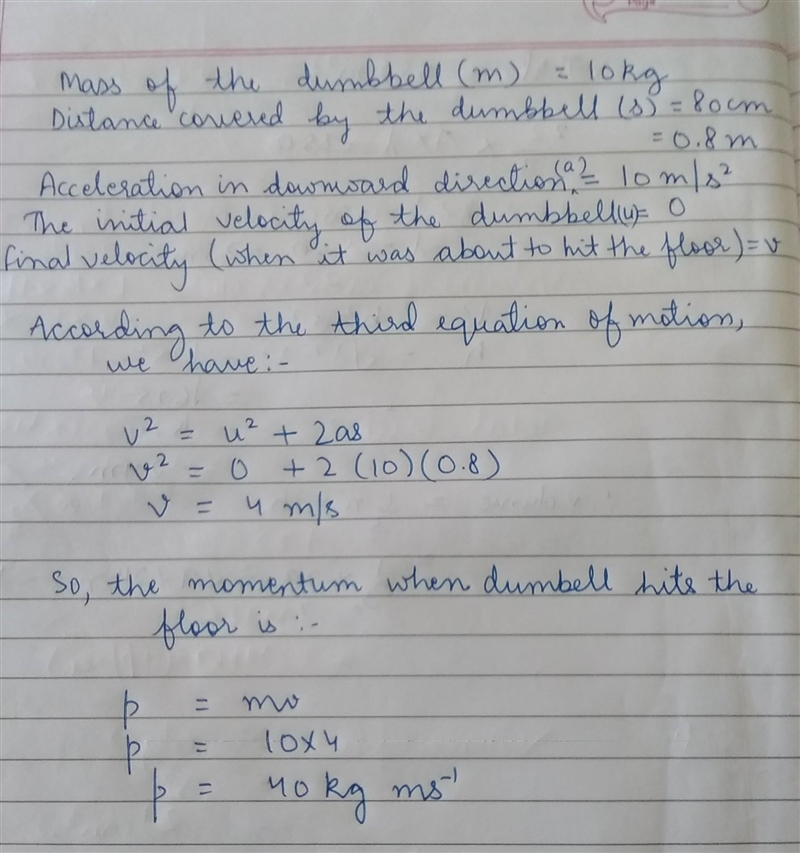 Mass of the dumbbell (m) = 10kg
Distance covered by the dumbbell (s) = 80cm
= 0.8 m
Acceleration in downward direction (a) = 10 m/s²
The initial velocity of the dumbbell(u)= 0
final velocity (when it was about to hit the floor) = v
According to the third equation of motion,
we have:-
v² = u² + 2as
v² = 0 + 2 (10)(0.8)
v = 4 m/s
So, the momentum when dumbell hits the
floor is :-
p = mv
p = 10×4
p = 40 kg ms⁻¹